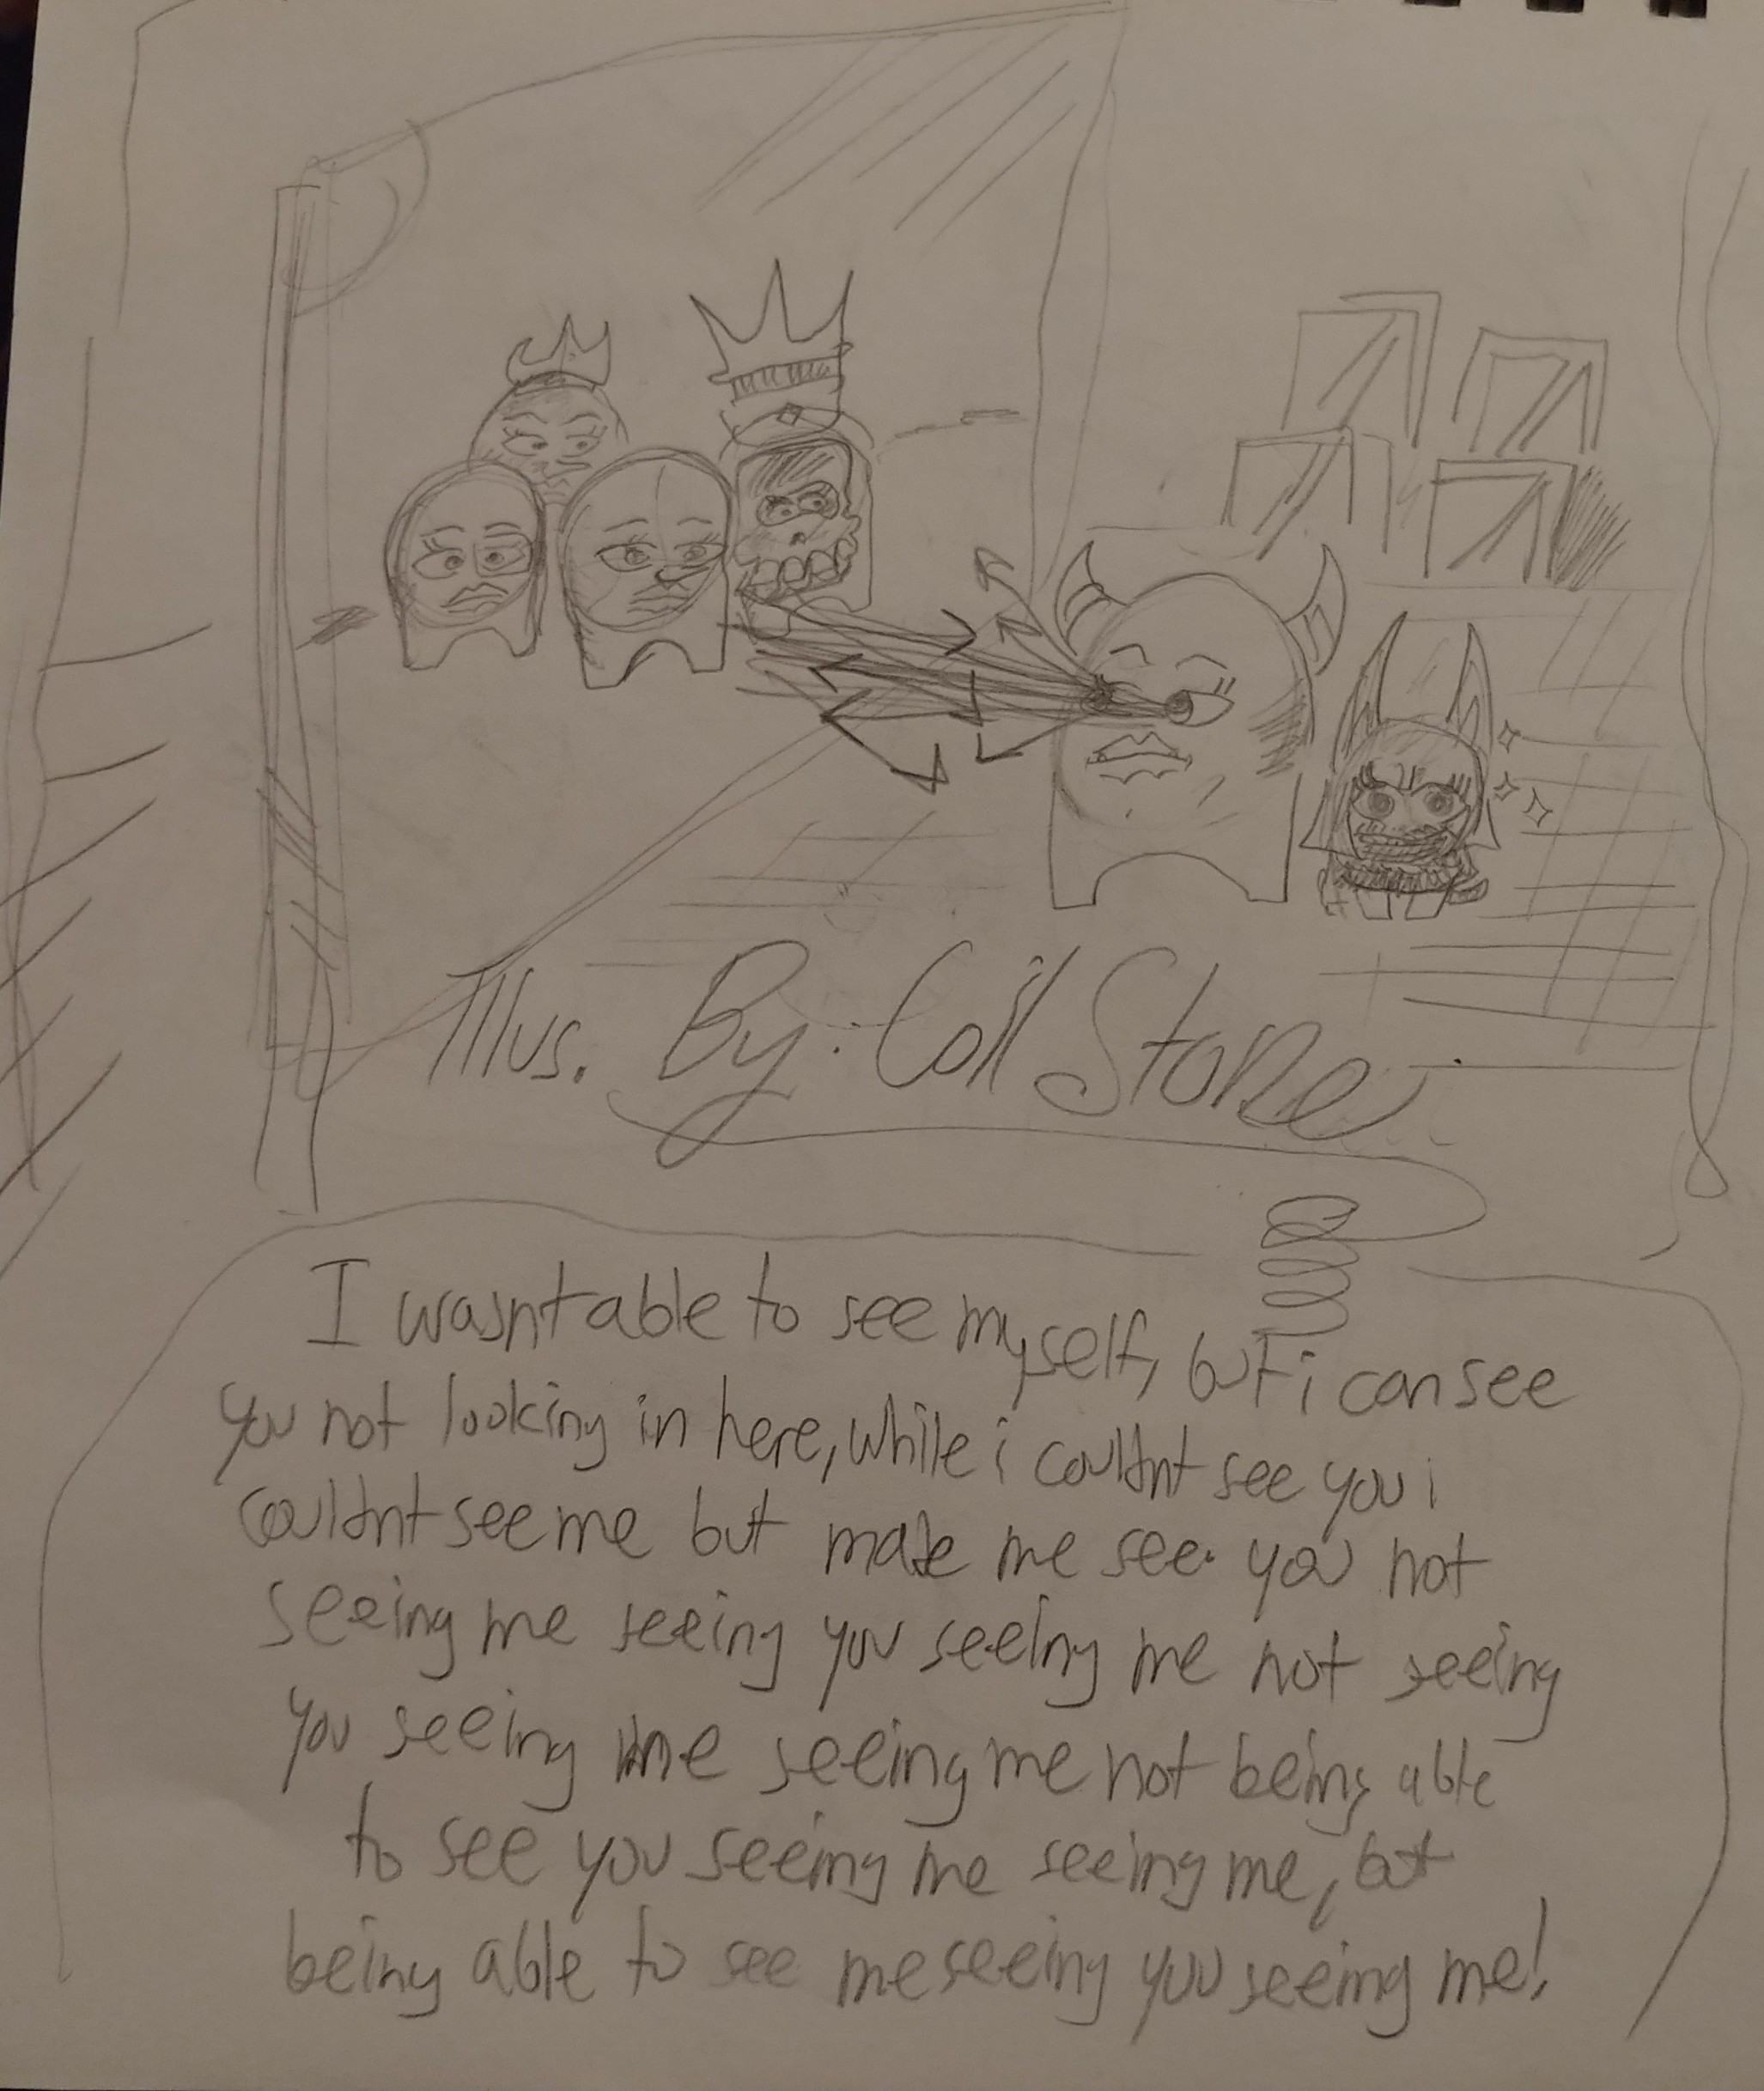 Illus. By: Coil Stone
I wasnt able to see myself, but i can see
you not looking in here, while i couldnt see you i
couldnt see me but made me see you not
seeing me seeing you seeing me not seeing
you seeing me seeing me not being able
to see you seeing me seeing me, but
being able to see me seeing you seeing me!